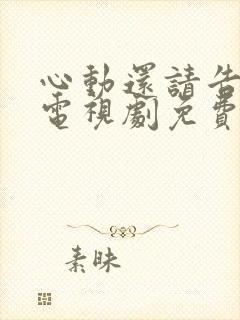 心動還請告
電視劇免費
素昧